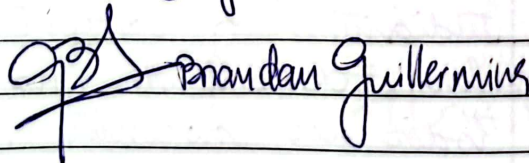 Brandan Guillermins